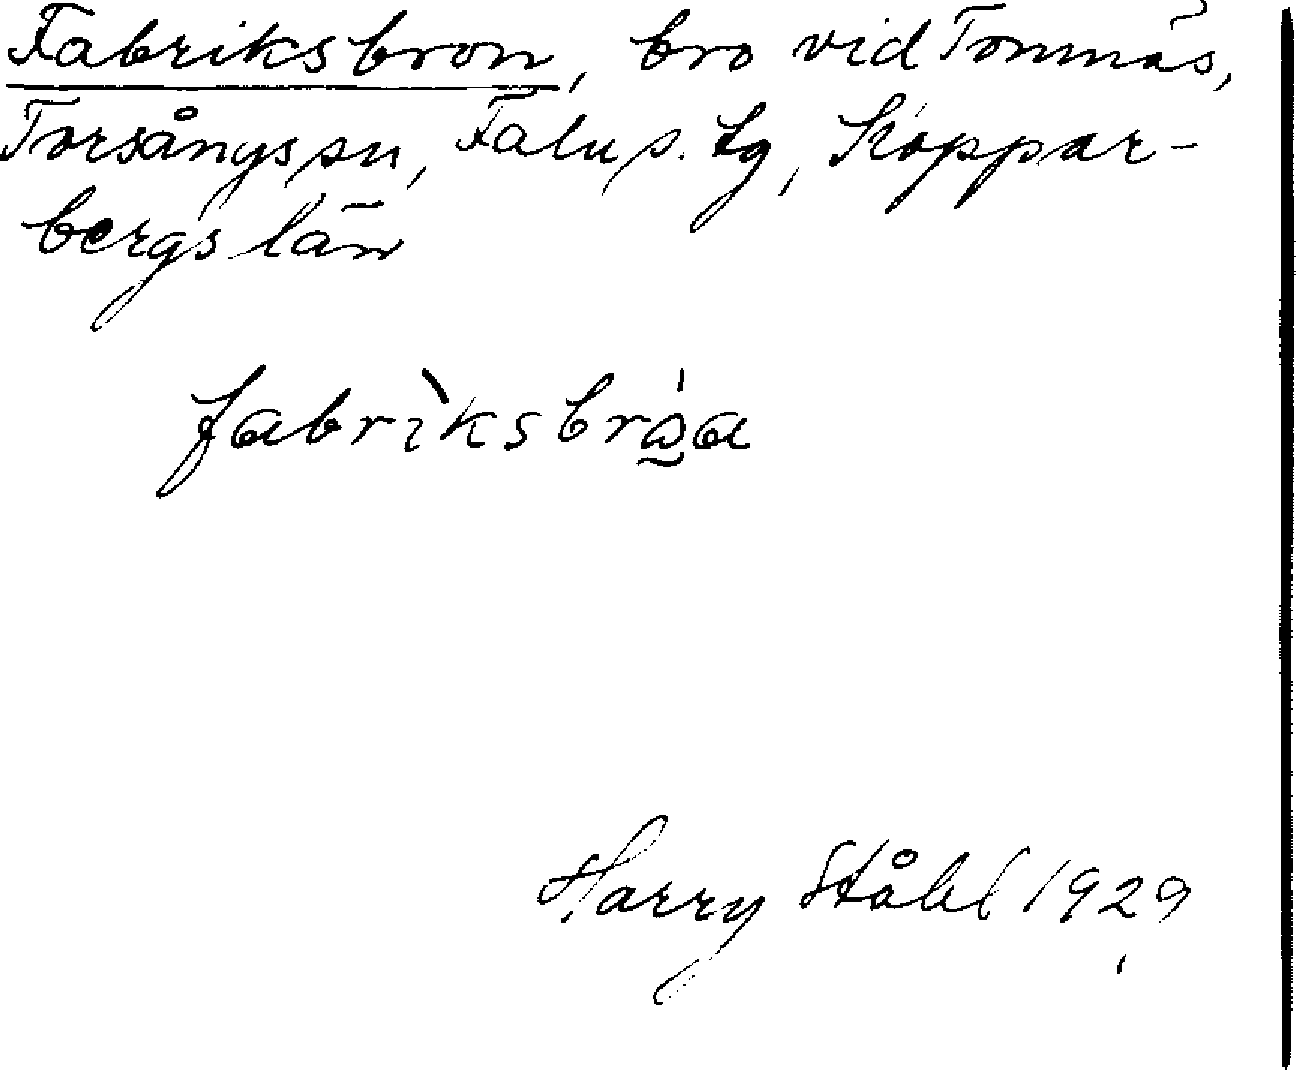 Fabriksbron, bro vid Tomnäs,
Torsångs sn, Falu s. tg, Koppar-
bergs län
fabrìksbróa
Harry Ståhl 1929